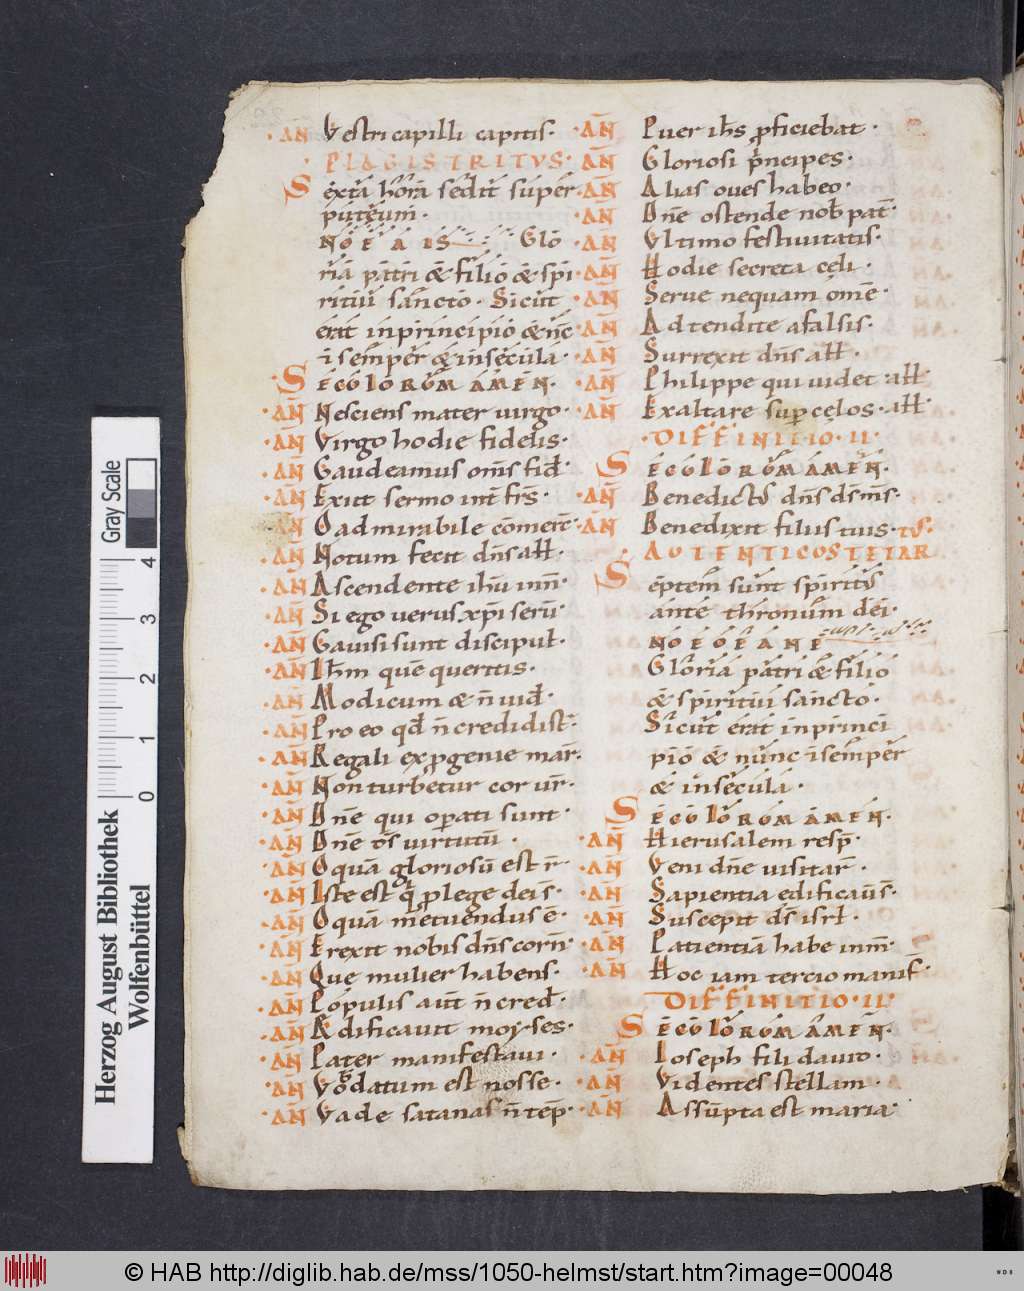 AN̄ Vestri capilli capitis.
PLAGIS TRITVS.
Sexta hora sedit super
puteum.
NOEAIS Glo
ria patri & filio & spi
ritui sancto. Sicut
erat in principio & nc̄
& semper & in sęcula.
SECOLOROM AMEN.
AN̄ Nesciens mater uirgo.
AN̄ Virgo hodie fidelis.
AN̄ Gaudeamus om̄s fid̄.
AN̄ Exiit sermo int̄ fr̄s.
AN̄ O admirabile cōmerc̄.
AN̄ Notum fecit dn̄s all̄.
AN̄ Ascendente ih̄u inn̄.
AN̄ Si ego uerus xp̄i seru̅.
AN̄ Gauisi sunt discipul̄.
AN̄ Ih̄m quē queritis.
AN̄ Modicum & n̄ uid̄.
AN̄ Pro eo qd̄ n̄ credidist̄.
AN̄ Regali ex p̱genie mar̄.
AN̄ Non turbetur cor ur̄.
AN̄ Dn̄e qui oꝑati sunt.
AN̄ Dn̄e d̄s uirtutū.
AN̄ O quā gloriosū est r̄
AN̄ Iste est q̄ ꝓ lege dei s̄.
AN̄ O quā metuendus ē.
AN̄ Erexit nobis dn̄s corn̄.
AN̄ Quę mulier habens.
AN̄ Populis aut̄ n̄ cred̄.
AN̄ Ædificauit moyses.
AN̄ Pater manifestaui.
AN̄ Vob̄ datum est nosse.
AN̄ Vade satanas n̄ tēp.
AN̄ Puer ih̄s ꝓficiebat.
AN̄ Gloriosi p̄ncipes.
AN̄ Alias oues habeo.
AN̄ Dn̄e ostende nob̄ pat̄.
AN̄ Vltimo festiuitatis.
AN̄ Hodie secreta cęli.
AN̄ Serue nequam om̄e.
AN̄ Adtendite a falsis.
AN̄ Surrexit dn̄s all̄.
AN̄ Philippe qui uidet all̄
AN̄ Exaltare sup̄ cęlos. all̄
DIFFINITIO. II.
SECOLOROM AMEN.
AN̄ Benedict' dn̄s ds̄ m̄s.
AN̄ Benedixit filius tuis. TVS.
AVTENTICOS TETAR
Septem sunt spiritus
ante thronum dei.
NOEOEANE
Gloria patri & filio
& spiritui sancto.
Sicut erat in princi
pio & nunc & semper
& in sęcula.
SECOLOROM AMEN.
AN̄ Hierusalem resp̄.
AN̄ Veni dn̄e uisitar̄.
AN̄ Sapientia edificau̅s.
AN̄ Suscepit ds̄ isrl̄.
AN̄ Patientiā habe inm̄.
AN̄ Hoc iam tercio manif̄.
DIFFINITIO. II.
SECOLOROM AMEN.
AN̄ Ioseph fili dauid.
AN̄ Videntes stellam.
AN̄ Assūpta est maria
Herzog August Bibliothek
Wolfenbüttel
0 1 2 3 4
Gray Scale
© HAB http://diglib.hab.de/mss/1050-helmst/start.htm?image=00048